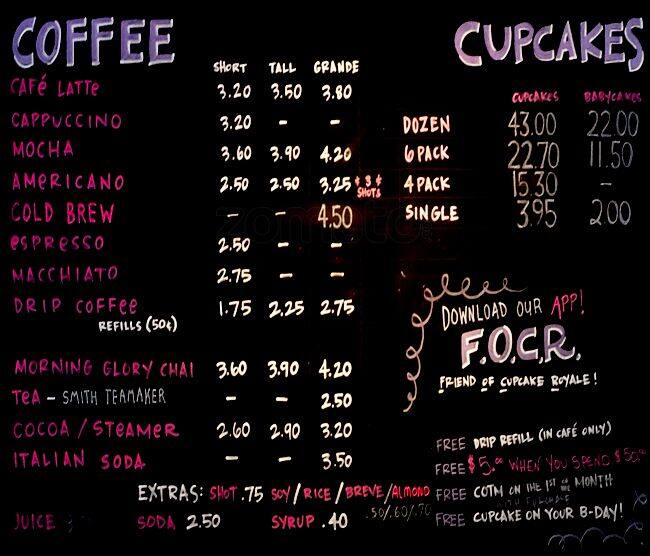 COFFEE
SHORT TALL GRANDE
CAFÉ LATTE 3.20 3.50 3.80
CAPPUCCINO 3.20 – –
MOCHA 3.60 3.90 4.20
AMERICANO 2.50 2.50 3.25 ← 3 → SHOTS
COLD BREW – – 4.50
ESPRESSO 2.50 – –
MACCHIATO 2.75 – –
DRIP COFFEE 1.75 2.25 2.75
REFILLS (50¢)
MORNING GLORY CHAI 3.60 3.90 4.20
TEA – SMITH TEAMAKER 2.50
COCOA / STEAMER 2.60 2.90 3.20
ITALIAN SODA – – 3.50
EXTRAS: SHOT .75 SOY/RICE/BREVE/ALMOND
.50/.60/.70
JUICE SODA 2.50 SYRUP .40
CUPCAKES
CUPCAKES BABYCAKES
DOZEN 43.00 22.00
6 PACK 22.70 11.50
4 PACK 15.30 –
SINGLE 3.95 2.00
zomato
DOWNLOAD OUR APP!
F.O.C.R.
FRIEND OF CUPCAKE ROYALE!
FREE DRIP REFILL (IN CAFÉ ONLY)
FREE $5.00 WHEN YOU SPEND $50.00
FREE COTM ON THE 1ST OF MONTH
WITH PURCHASE
FREE CUPCAKE ON YOUR B-DAY!